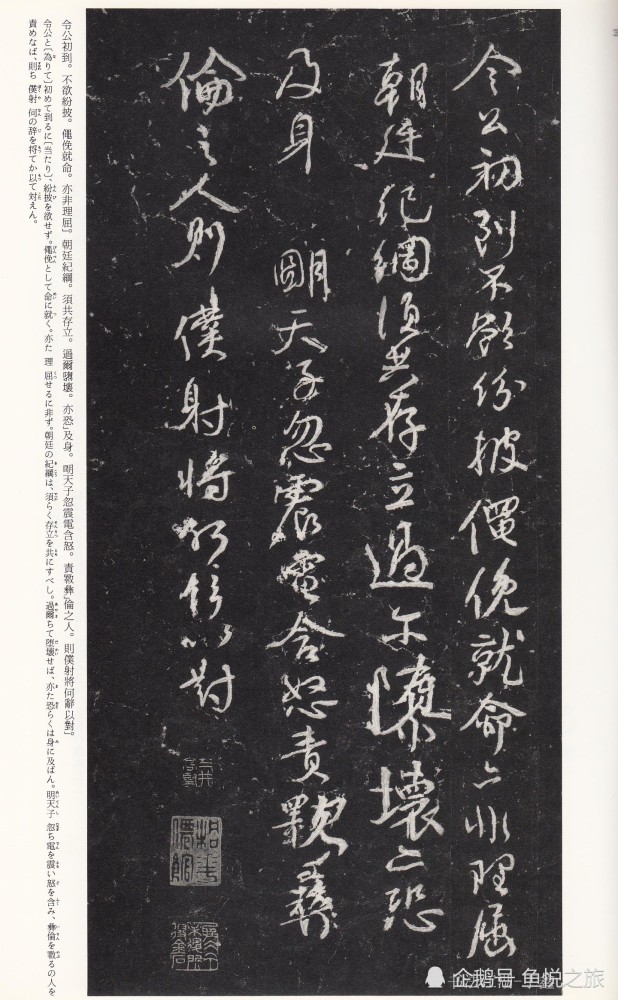 令公初到不欲紛披僶俛就命亦非理屈
朝廷紀綱須共存立過尔隳壞亦恐
及身 明天子忽震電含怒責斁彝
倫之人則 僕射將何辭以對
令公初到。不欲紛披。僶俛就命。亦非理屈」。朝廷紀綱。須共存立。過爾隳壞。亦恐」及身。明天子忽震電含怒。責斁彝」倫之人。則僕射將何辭以對」。
令公と〔為りて〕初めて到るに〔当たり〕、紛披を欲せず。僶俛として命に就く。亦た 理 屈せるに非ず。朝廷の紀綱は、須らく存立を共にすべし。過爾ちて堕壊せば、亦た恐らくは身に及ばん。明天子 忽ち電を震い怒を含み、彝倫を斁るの人を
責めなば、則ち 僕射 何の辞を将てか以て対えん。
企鹅号 鱼悦之旅